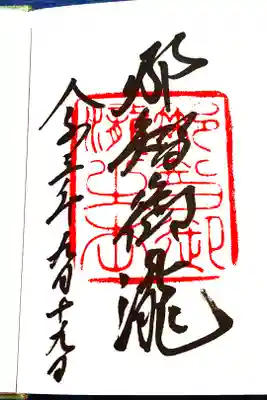 那智御瀧
令和三年九月十九日